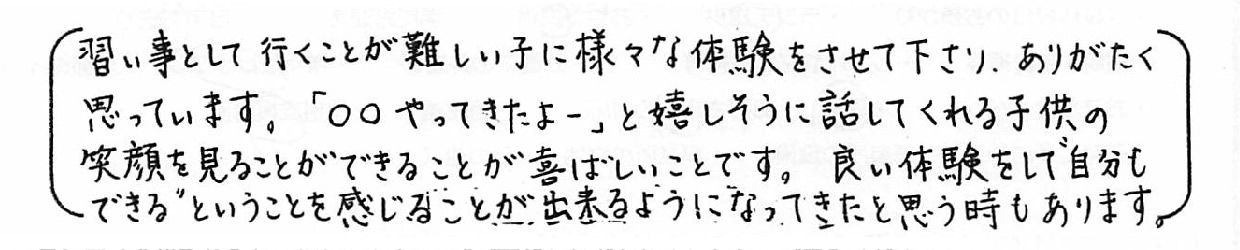 習い事として行くことが難しい子に様々な体験をさせて下さり、ありがたく
思っています。「○○やってきたよー」と嬉しそうに話してくれる子供の
笑顔を見ることができることが喜ばしいことです。良い体験をして"自分も
できる"ということを感じることが出来るようになってきたと思う時もあります。